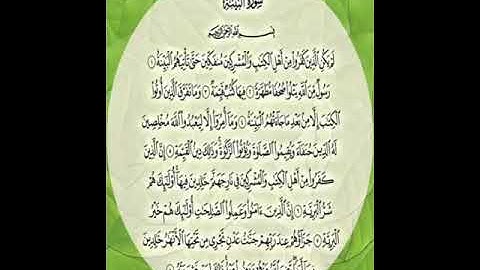 سورة البينة
بسم الله الرحمن الرحيم
لم يكن الذين كفروا من أهل الكتب والمشركين منفكين حتى تأتيهم البينة ١
رسول من الله يتلوا صحفا مطهرة ٢ فيها كتب قيمة ٣ وما تفرق الذين أوتوا
الكتب إلا من بعد ما جاءتهم البينة ٤ وما أمروا إلا ليعبدوا الله مخلصين
له الدين حنفاء ويقيموا الصلوة ويؤتوا الزكوة وذلك دين القيمة ٥ إن الذين
كفروا من أهل الكتب والمشركين في نار جهنم خلدين فيها أولئك هم
شر البرية ٦ إن الذين ءامنوا وعملوا الصلحت أولئك هم خير
البرية ٧ جزاؤهم عند ربهم جنت عدن تجري من تحتها الأنهر خلدين